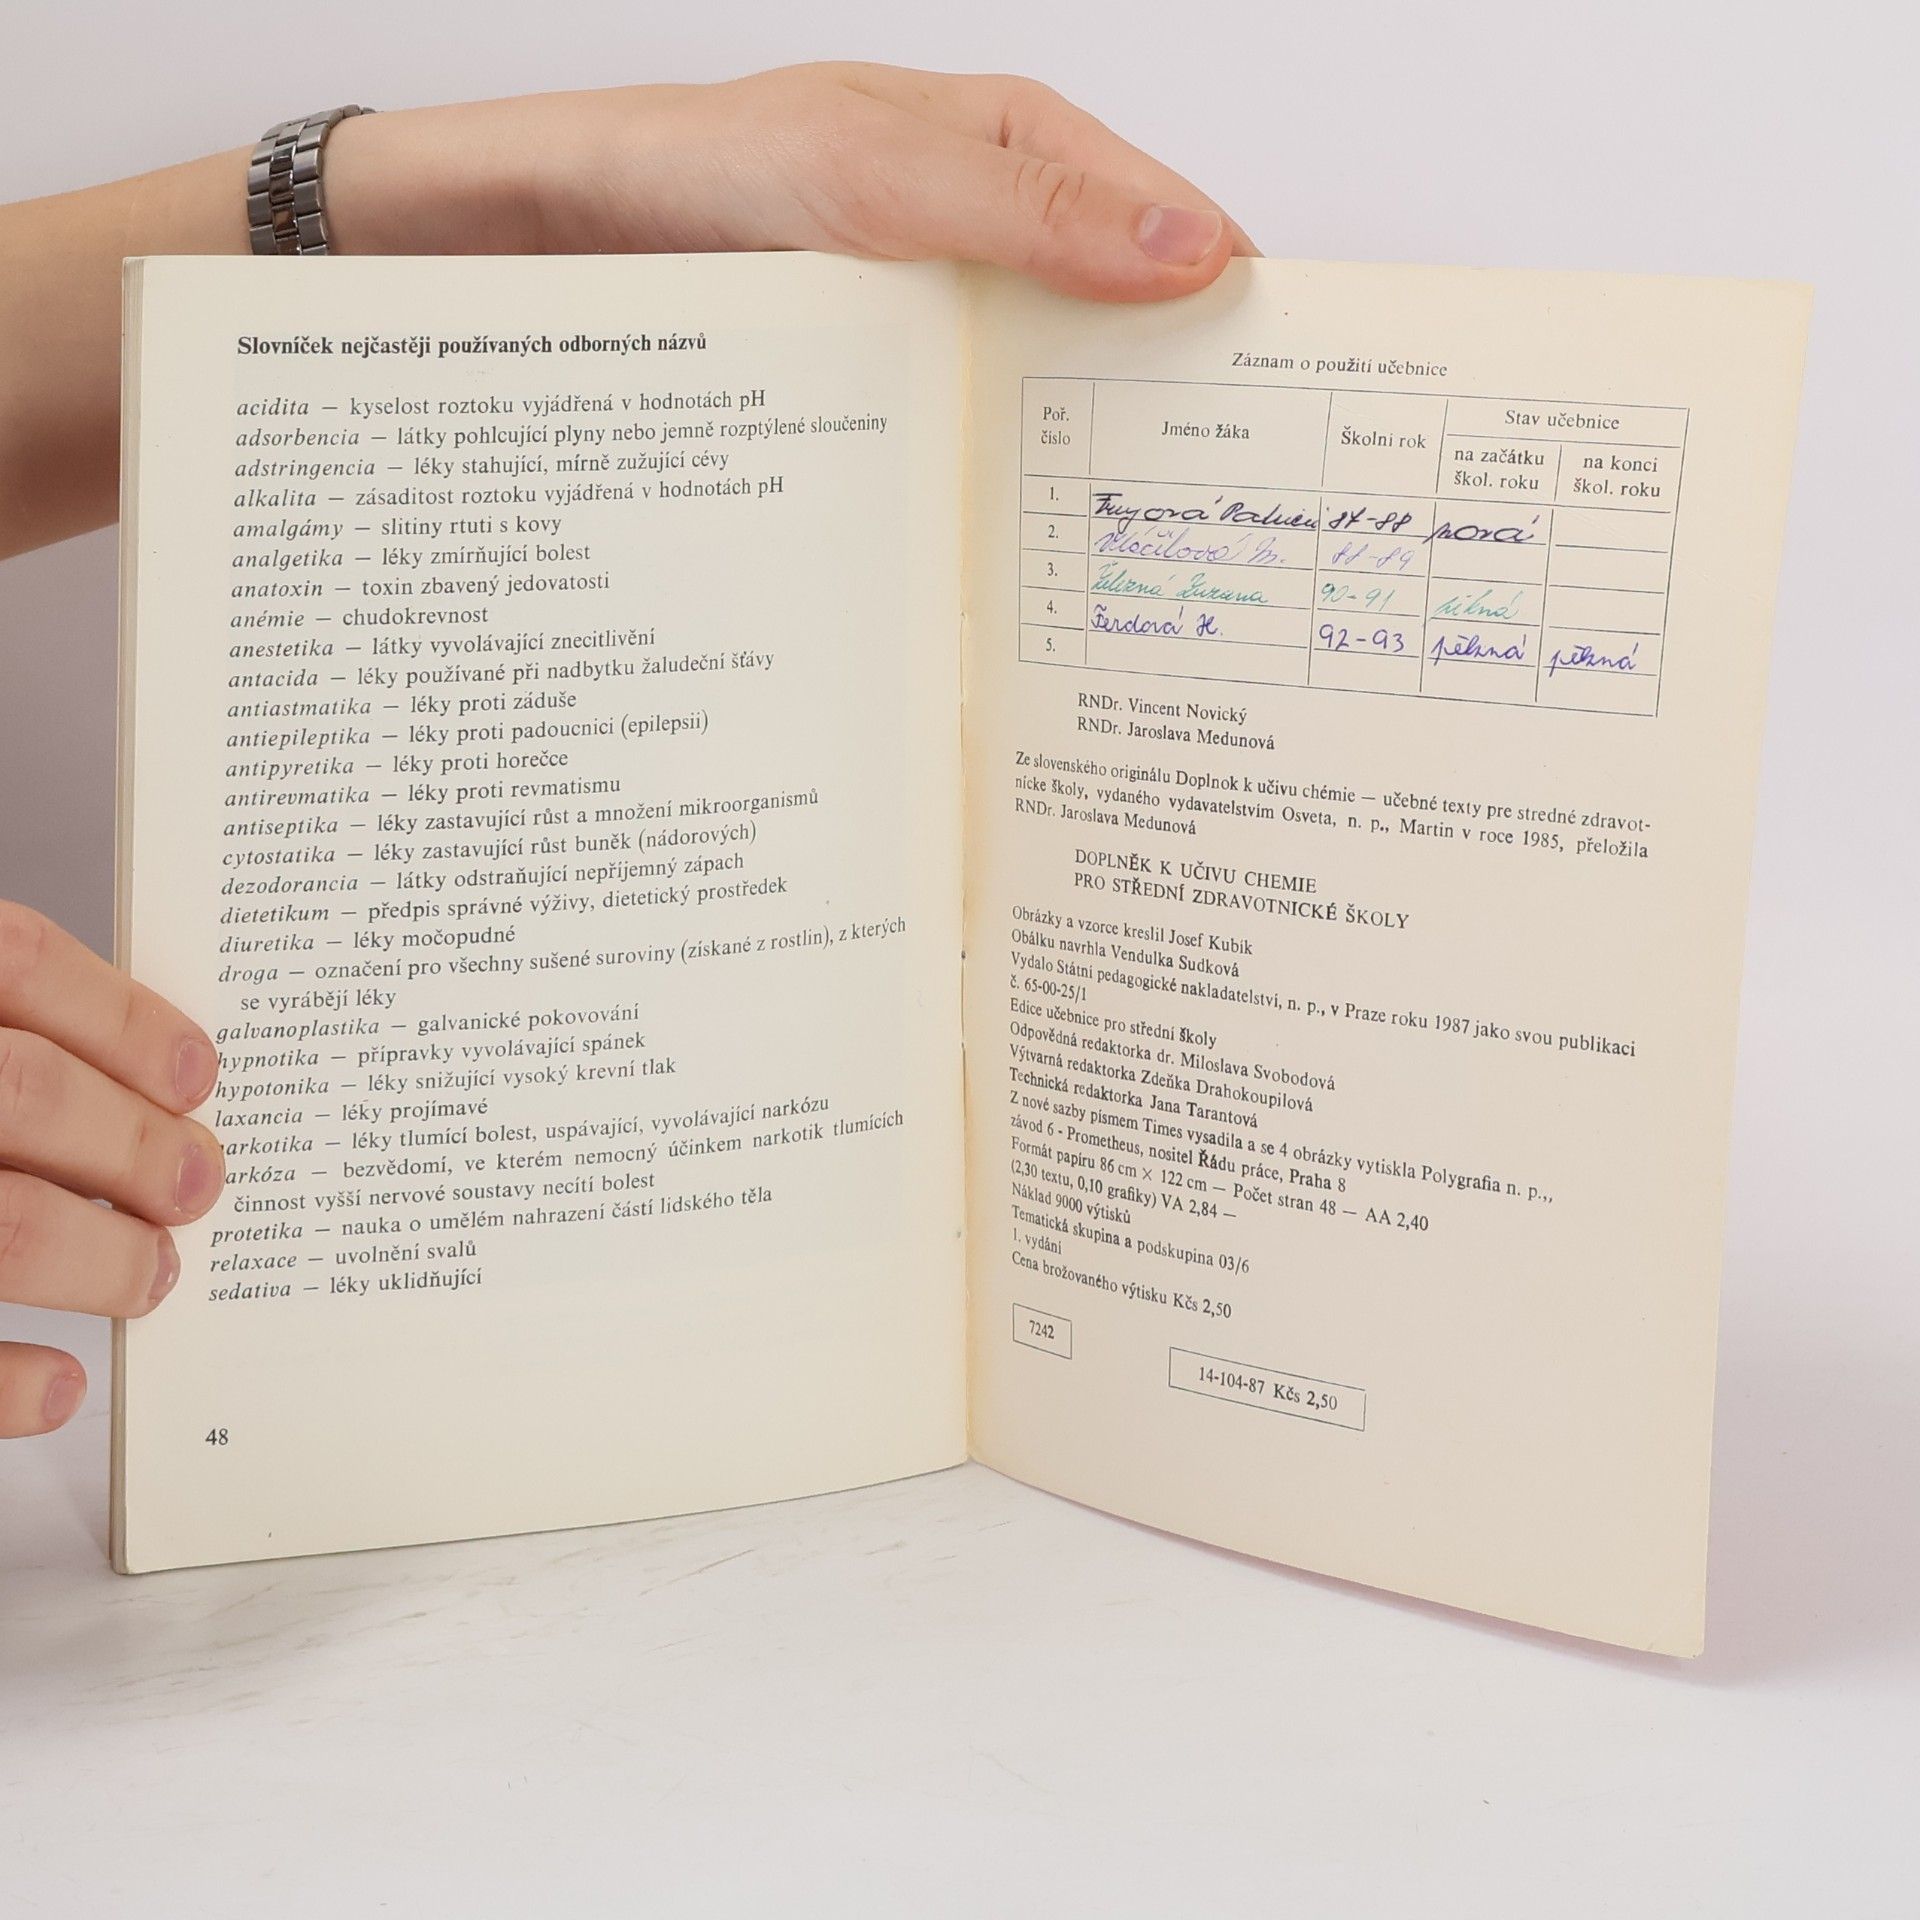 Slovníček nejčastěji používaných odborných názvů
acidita — kyselost roztoku vyjádřená v hodnotách pH
adsorbencia — látky pohlcující plyny nebo jemně rozptýlené sloučeniny
adstringencia — léky stahující, mírně zužující cévy
alkalita — zásaditost roztoku vyjádřená v hodnotách pH
amalgámy — slitiny rtuti s kovy
analgetika — léky zmírňující bolest
anatoxin — toxin zbavený jedovatosti
anémie — chudokrevnost
anestetika — látky vyvolávající znecitlivění
antacida — léky používané při nadbytku žaludeční šťávy
antiastmatika — léky proti záduše
antiepileptika — léky proti padoucnici (epilepsii)
antipyretika — léky proti horečce
antirevmatika — léky proti revmatismu
antiseptika — léky zastavující růst a množení mikroorganismů
cytostatika — léky zastavující růst buněk (nádorových)
dezodorancia — látky odstraňující nepříjemný zápach
dietetikum — předpis správné výživy, dietetický prostředek
diuretika — léky močopudné
droga — označení pro všechny sušené suroviny (získané z rostlin), z kterých
se vyrábějí léky
galvanoplastika — galvanické pokovování
hypnotika — přípravky vyvolávající spánek
hypotonika — léky snižující vysoký krevní tlak
laxancia — léky projímavé
arkotika — léky tlumící bolest, uspávající, vyvolávající narkózu
arkóza — bezvědomí, ve kterém nemocný účinkem narkotik tlumících
činnost vyšší nervové soustavy necítí bolest
protetika — nauka o umělém nahrazení částí lidského těla
relaxace — uvolnění svalů
sedativa — léky uklidňující
48
Záznam o použití učebnice
Poř. číslo Jméno žáka Školní rok Stav učebnice
na začátku škol. roku na konci škol. roku
1. 87-88 nová
2. M. 88-89
3. Železná Zuzana 90-91 pěkná
4. Ferdová H. 92-93 pěkná pěkná
5.
RNDr. Vincent Novický
RNDr. Jaroslava Medunová
Ze slovenského originálu Doplnok k učivu chémie — učebné texty pre stredné zdravot-
nícke školy, vydaného vydavatelstvím Osveta, n. p., Martin v roce 1985, přeložila
RNDr. Jaroslava Medunová
DOPLNĚK K UČIVU CHEMIE
PRO STŘEDNÍ ZDRAVOTNICKÉ ŠKOLY
Obrázky a vzorce kreslil Josef Kubík
Obálku navrhla Vendulka Sudková
Vydalo Státní pedagogické nakladatelství, n. p., v Praze roku 1987 jako svou publikaci
č. 65-00-25/1
Edice učebnice pro střední školy
Odpovědná redaktorka dr. Miloslava Svobodová
Výtvarná redaktorka Zdeňka Drahokoupilová
Technická redaktorka Jana Tarantová
Z nové sazby písmem Times vysadila a se 4 obrázky vytiskla Polygrafia n. p.,,
závod 6 - Prometheus, nositel Řádu práce, Praha 8
Formát papíru 86 cm × 122 cm — Počet stran 48 — AA 2,40
(2,30 textu, 0,10 grafiky) VA 2,84 —
Náklad 9000 výtisků
Tematická skupina a podskupina 03/6
1. vydání
Cena brožovaného výtisku Kčs 2,50
7242
14-104-87 Kčs 2,50